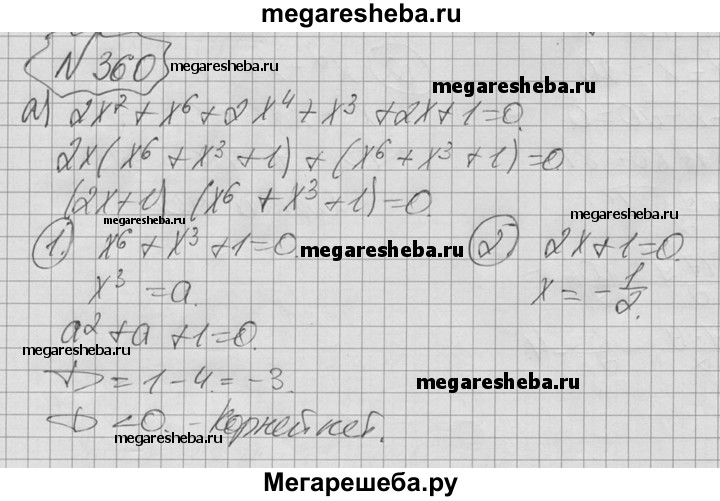 megaresheba.ru
N 360 megaresheba.ru
megaresheba.ru
а) 2x² + x⁶ + 2x⁴ + x³ + 2x + 1 = 0.
2x(x⁶ + x³ + 1) + (x⁶ + x³ + 1) = 0
(2x+1) (x⁶ + x³ + 1) = 0.
megaresheba.ru megaresheba.ru
1. x⁶ + x³ + 1 = 0. megaresheba.ru 2. 2x + 1 = 0.
x³ = a. x = -1/2.
a² + a + 1 = 0.
megaresheba.ru
D = 1 - 4 = -3. megaresheba.ru
D < 0. - Корней нет.
megaresheba.ru
Мегарешеба.ру